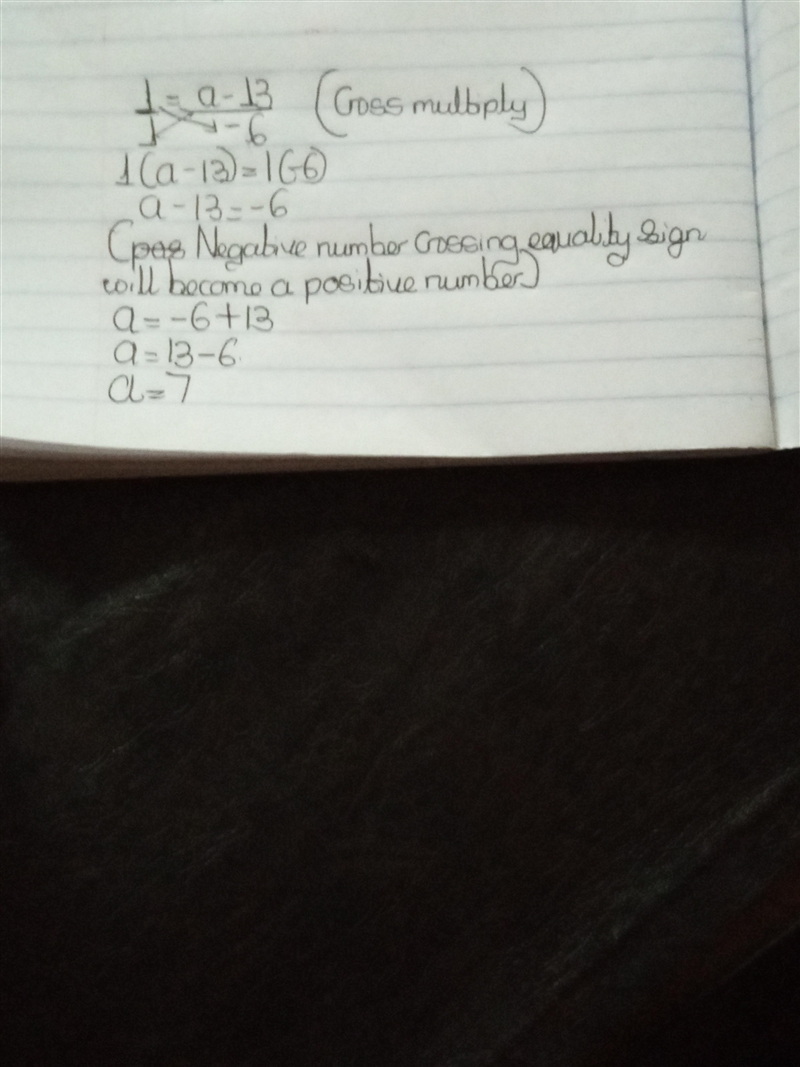 1 = a - 13 (Cross multiply)
1 -6
1(a - 13) = 1(-6)
a - 13 = -6
(pos Negative number crossing equality sign
will become a positive number)
a = -6 + 13
a = 13 - 6
a = 7